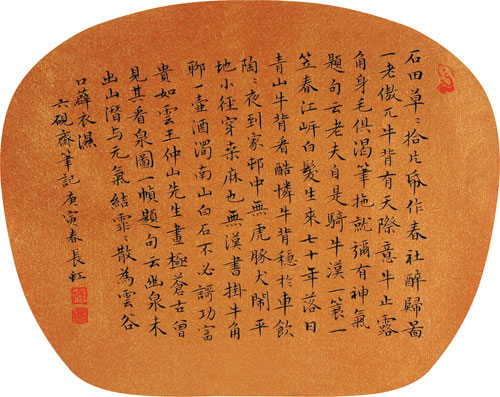 石田草〻拾片紙作春社醉歸啚
一老傲兀牛背有天際意牛止露
角身毛俱渴筆拖就彌有神氣
題句云老夫自是騎牛漢一簑一
笠春江岸白髮生來七十年落日
青山牛背看酷憐牛背穩於車飲
陶〻夜到家邨中無虎豚犬鬧平
地小徑穿桑麻也無漢書掛牛角
聊一壺酒濁南山白石不必謌功富
貴如雲王仲山先生畫極蒼古曾
見其看泉圖一幀題句云幽泉未
出山潛与元氣結霏〻散為雲谷
口薜衣濕
六硯齋筆記庚寅春長虹